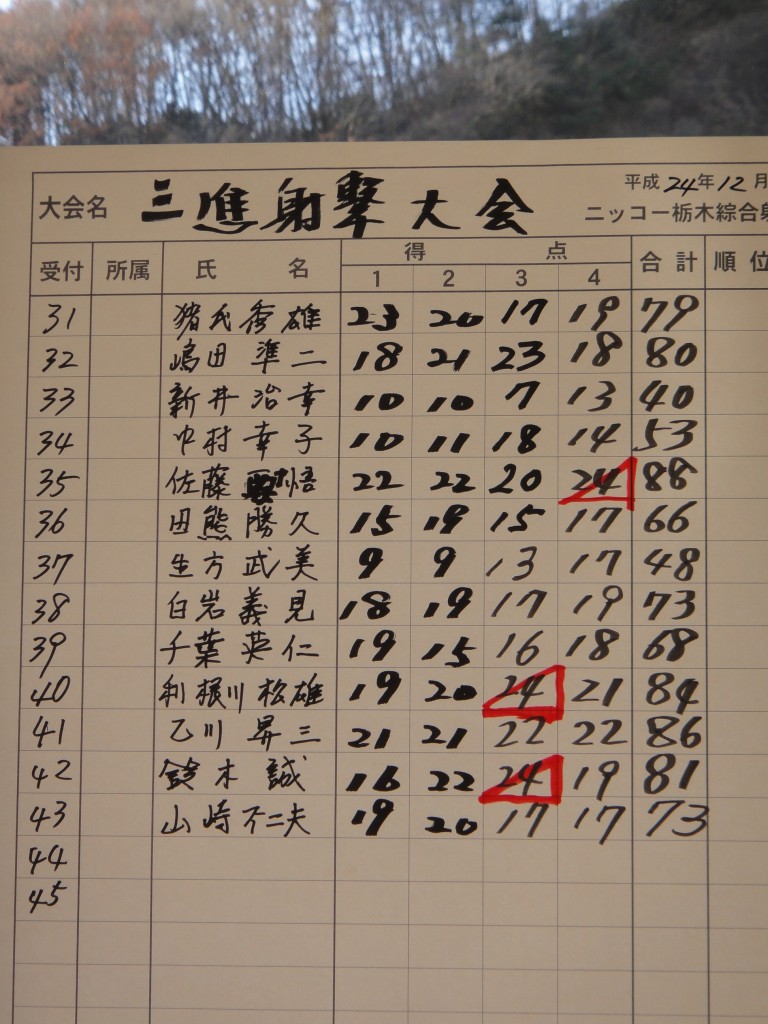 大会名 三進射撃大会 平成24年12月
ニッコー栃木綜合射
受付 所属 氏名 得点 合計 順位
1 2 3 4
31 猪氏秀雄 23 20 17 19 79
32 嶋田準二 18 21 23 18 80
33 新井治幸 10 10 7 13 40
34 中村幸子 10 11 18 14 53
35 佐藤 悟 22 22 20 24 88
36 田熊勝久 15 19 15 17 66
37 生方武美 9 9 13 17 48
38 白岩義見 18 19 17 19 73
39 千葉英仁 19 15 16 18 68
40 利根川松雄 19 20 24 21 84
41 乙川昇三 21 21 22 22 86
42 鈴木誠 16 22 24 19 81
43 山崎不二夫 19 20 17 17 73
44
45